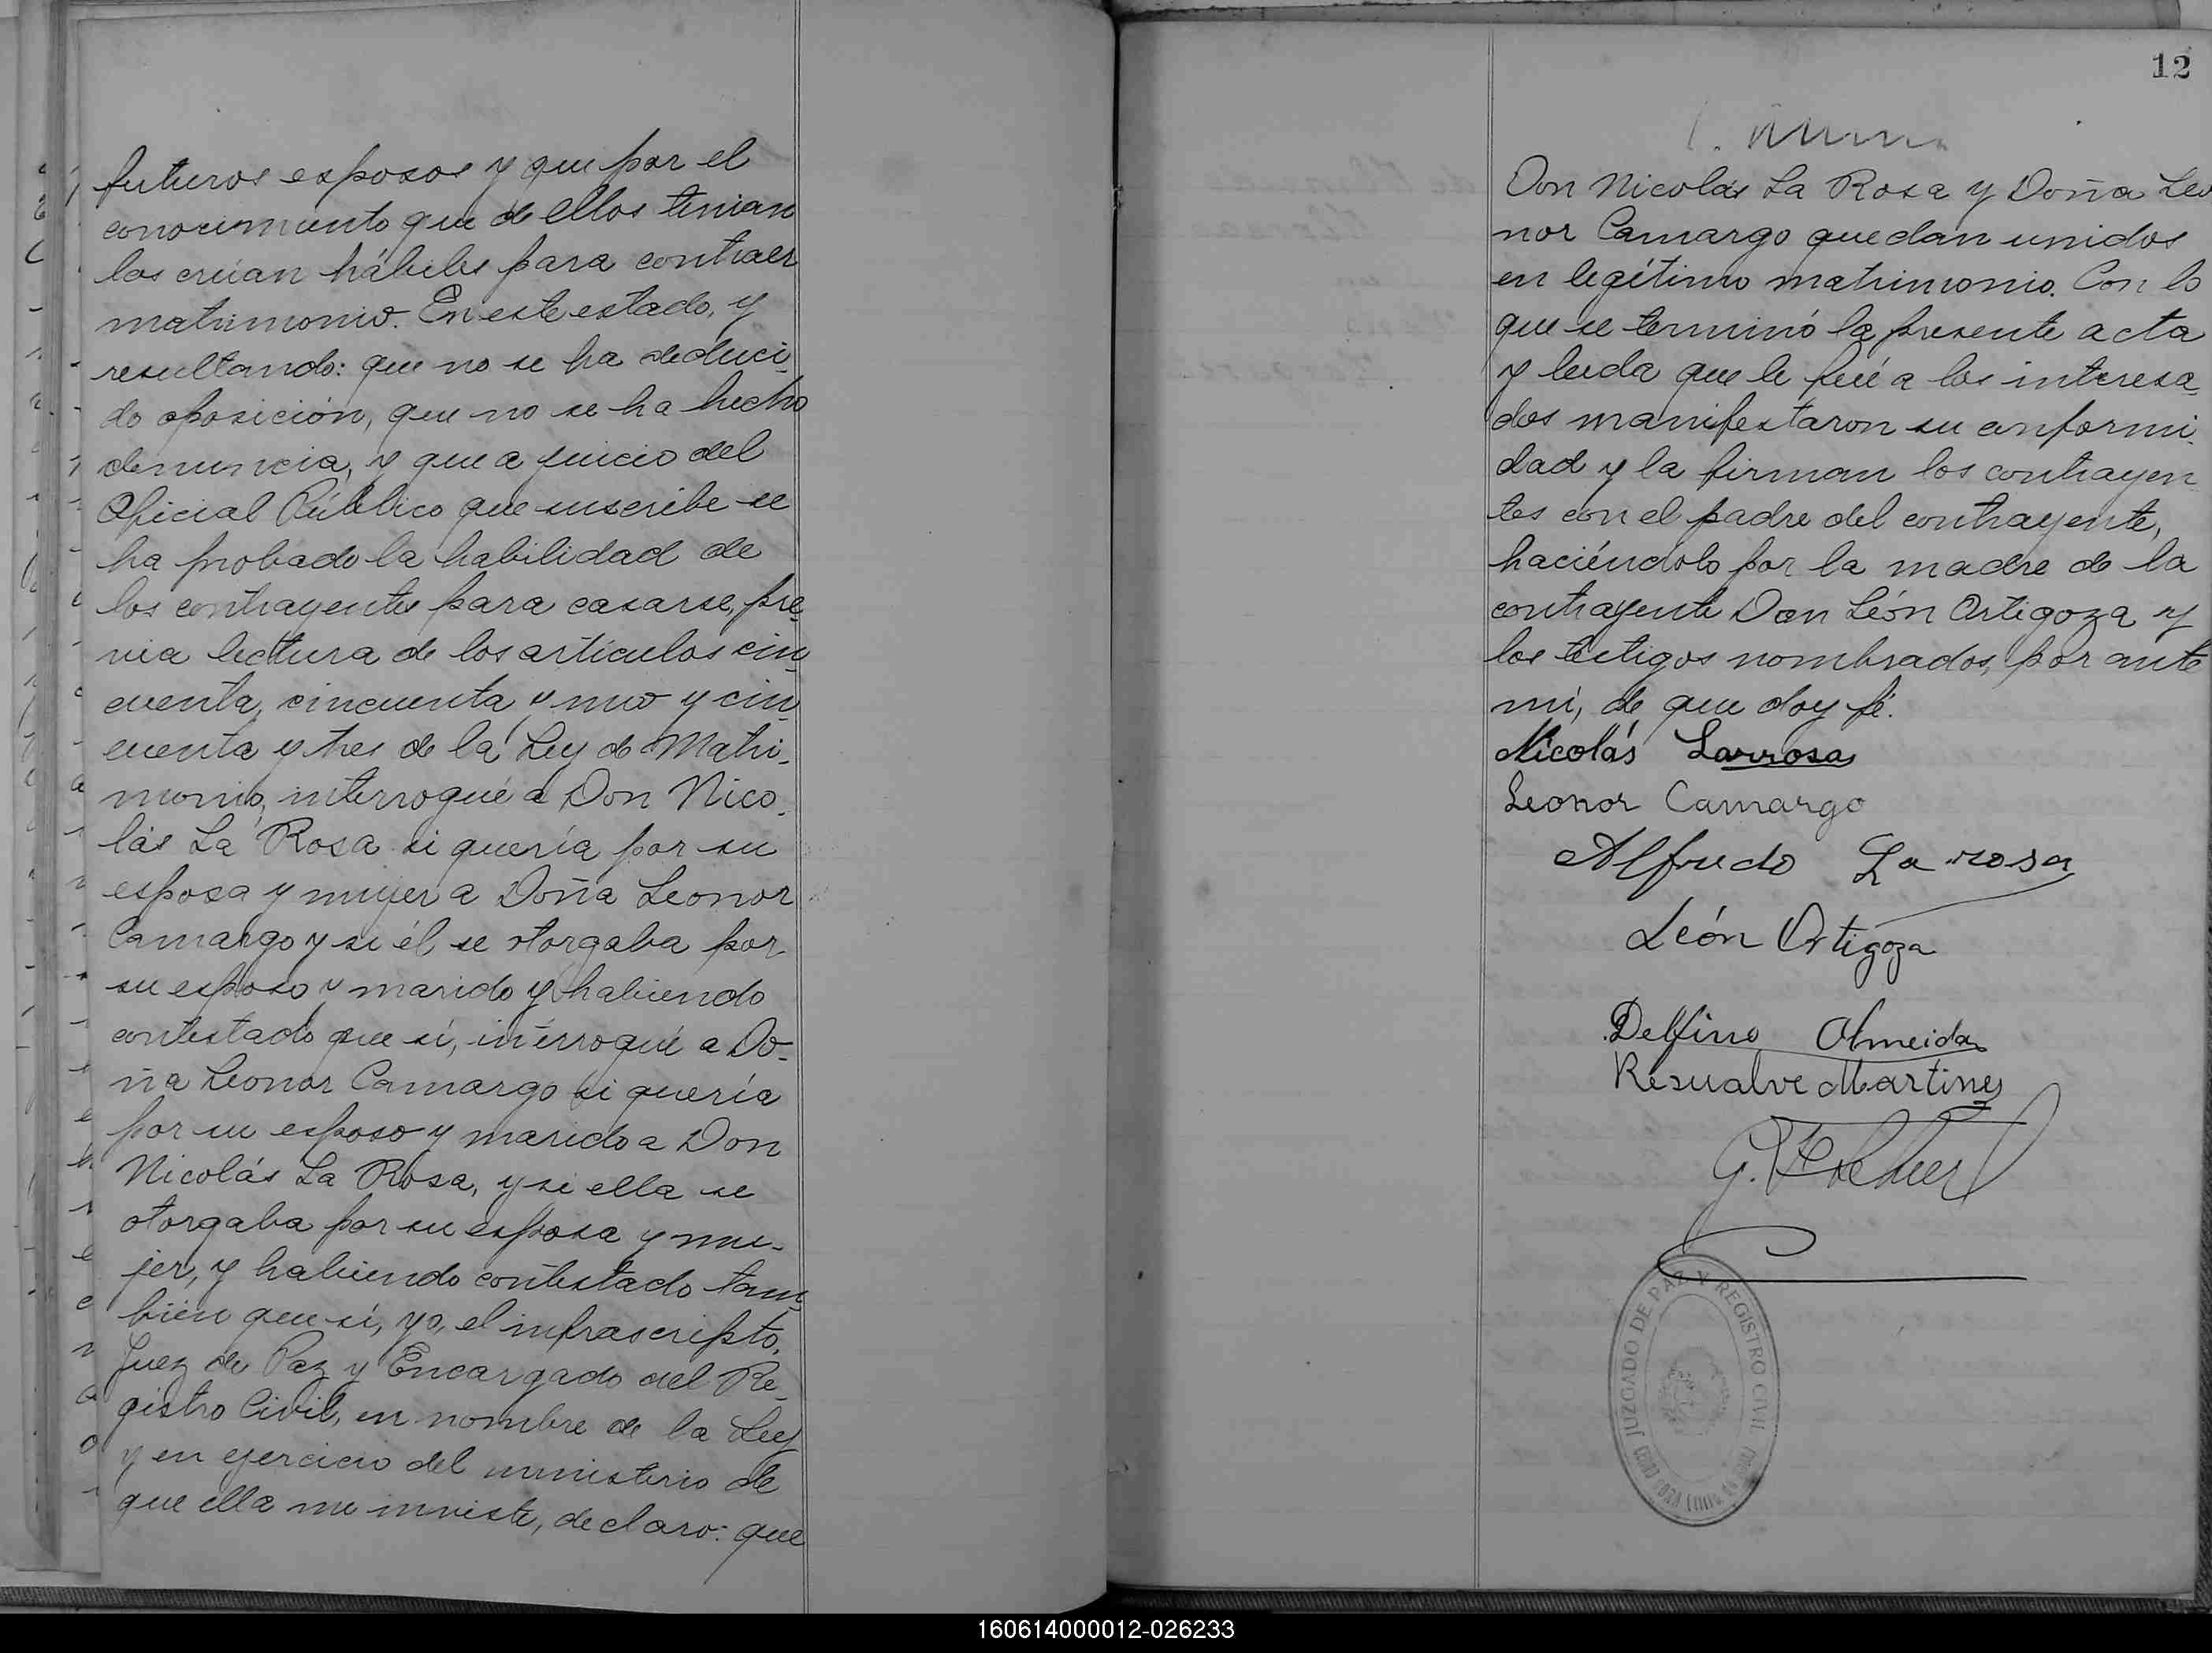 futuros esposos y que por el
conocimiento que de ellos tenian
los creian hábiles para contraer
matrimonio. En este estado, y
resultando: que no se ha deduci-
do oposición, que no se ha hecho
denuncia, y que a juicio del
Oficial Público que suscribe se
ha probado la habilidad de
los contrayentes para casarse, pre-
via lectura de los artículos cin-
cuenta, cincuenta y uno y cin-
cuenta y tres de la Ley de Matri-
monio, interrogué a Don Nico-
lás La Rosa si quería por su
esposa y mujer a Doña Leonor
Camargo y si él se otorgaba por
su esposo y marido y habiendo
contestado que sí, interrogué a Do-
ña Leonor Camargo si quería
por su esposo y marido a Don
Nicolás La Rosa, y si ella se
otorgaba por su esposa y mu-
jer, y habiendo contestado tam-
bién que sí, yo, el infrascripto,
Juez de Paz y Encargado del Re-
gistro Civil, en nombre de la Ley
y en ejercicio del ministerio de
que ella me inviste, declaro: que
12
Don Nicolás La Rosa y Doña Leo
nor Camargo quedan unidos
en legítimo matrimonio. Con lo
que se terminó la presente acta
y leida que le fué a los interesa-
dos manifestaron su conformi-
dad y la firman los contrayen
tes con el padre del contrayente,
haciéndolo por la madre de la
contrayente Don León Ortigoza y
los testigos nombrados, por ante
mí, de que doy fé.
Nicolás Larrosa
Leonor Camargo
Alfredo La rosa
León Ortigoza
Delfino Olmeida
Resualve Martines
JUZGADO DE PAZ Y REGISTRO CIVIL
160614000012-026233